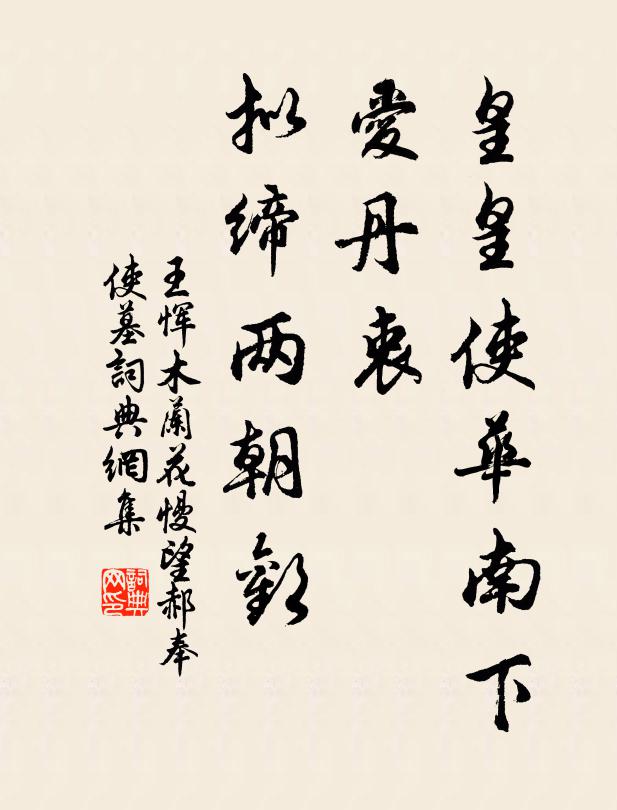 皇皇使華南下
愛丹衷
拟締两朝歡
王惲木蘭花慢望郝奉
使墓詞典網集
詞典
网印